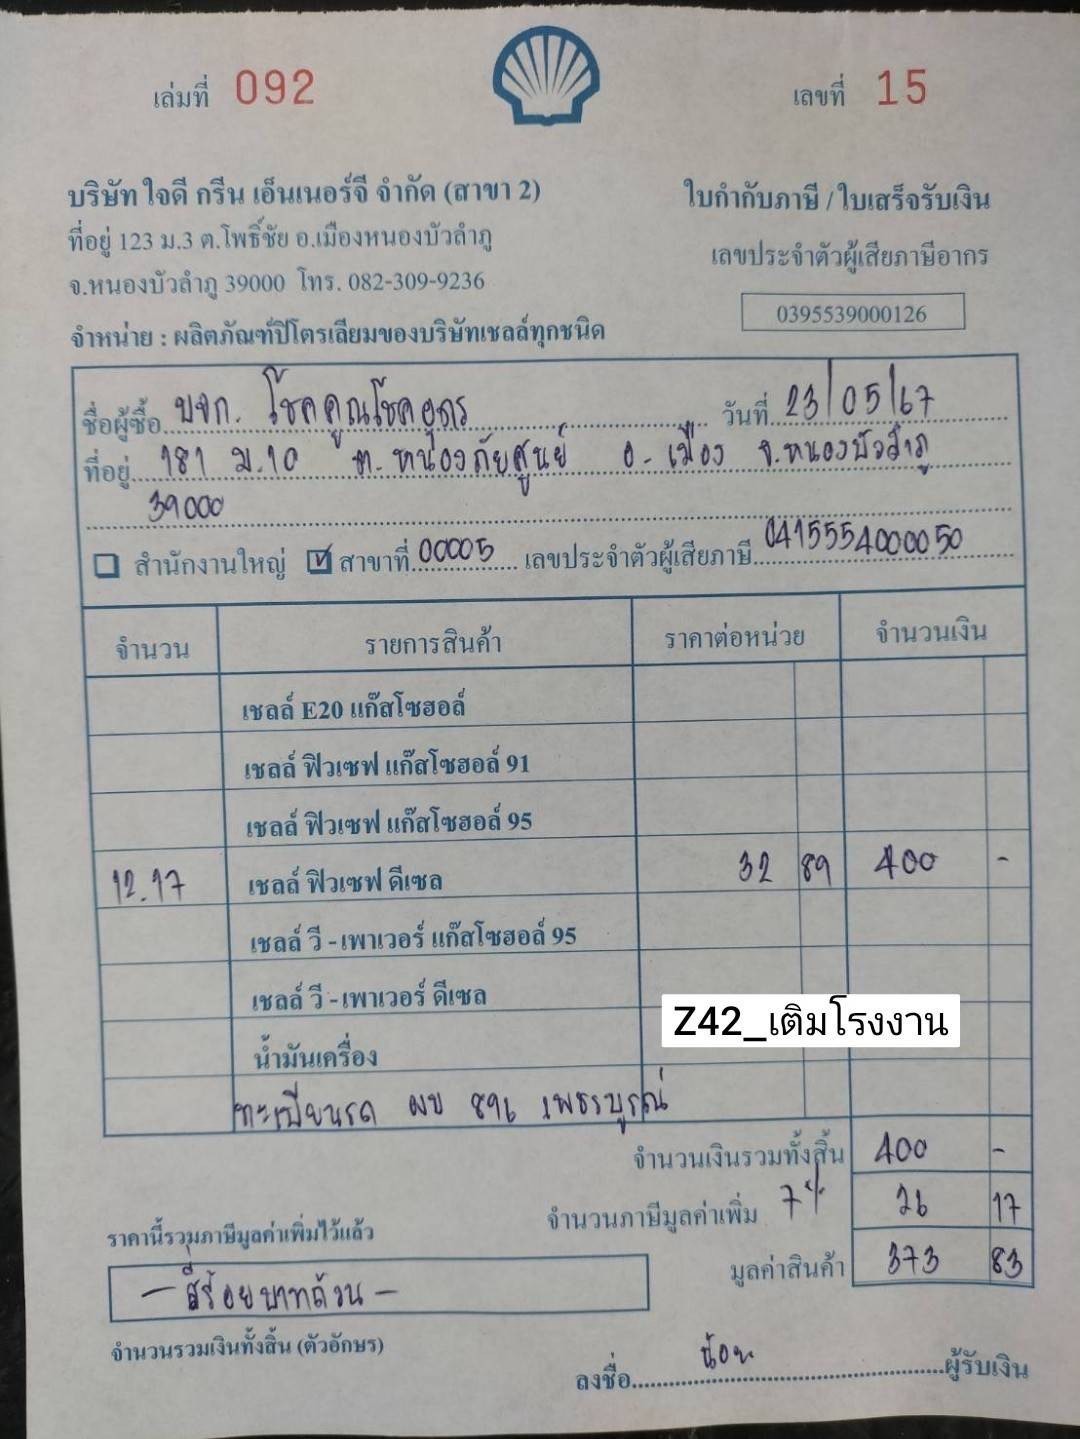 เล่มที่ 092
เลขที่ 15
บริษัท ใจดี กรีน เอ็นเนอร์จี จำกัด (สาขา 2)
ใบกำกับภาษี / ใบเสร็จรับเงิน
ที่อยู่ 123 ม.3 ต.โพธิ์ชัย อ.เมืองหนองบัวลำภู
เลขประจำตัวผู้เสียภาษีอากร
จ.หนองบัวลำภู 39000 โทร. 082-309-9236
0395539000126
จำหน่าย : ผลิตภัณฑ์ปิโตรเลียมของบริษัทเชลล์ทุกชนิด
ชื่อผู้ซื้อ บจก. โชคคูณโชคอุดร วันที่ 23/05/67
ที่อยู่ 181 ม.10 ต.หนองภัยศูนย์ อ.เมือง จ.หนองบัวลำภู
39000
สำนักงานใหญ่ ☑ สาขาที่ 00005 เลขประจำตัวผู้เสียภาษี 0415554000050
จำนวน รายการสินค้า ราคาต่อหน่วย จำนวนเงิน
เชลล์ E20 แก๊สโซฮอล์
เชลล์ ฟิวเซฟ แก๊สโซฮอล์ 91
เชลล์ ฟิวเซฟ แก๊สโซฮอล์ 95
12.17 เชลล์ ฟิวเซฟ ดีเซล 32 89 400 -
เชลล์ วี - เพาเวอร์ แก๊สโซฮอล์ 95
เชลล์ วี - เพาเวอร์ ดีเซล
Z42_เติมโรงงาน
น้ำมันเครื่อง
ทะเบียนรถ ผข 896 เพชรบูรณ์
จำนวนเงินรวมทั้งสิ้น 400 -
จำนวนภาษีมูลค่าเพิ่ม 7% 26 17
ราคานี้รวมภาษีมูลค่าเพิ่มไว้แล้ว
มูลค่าสินค้า 373 83
- สี่ร้อยบาทถ้วน -
จำนวนรวมเงินทั้งสิ้น (ตัวอักษร)
ลงชื่อ น้อย ผู้รับเงิน